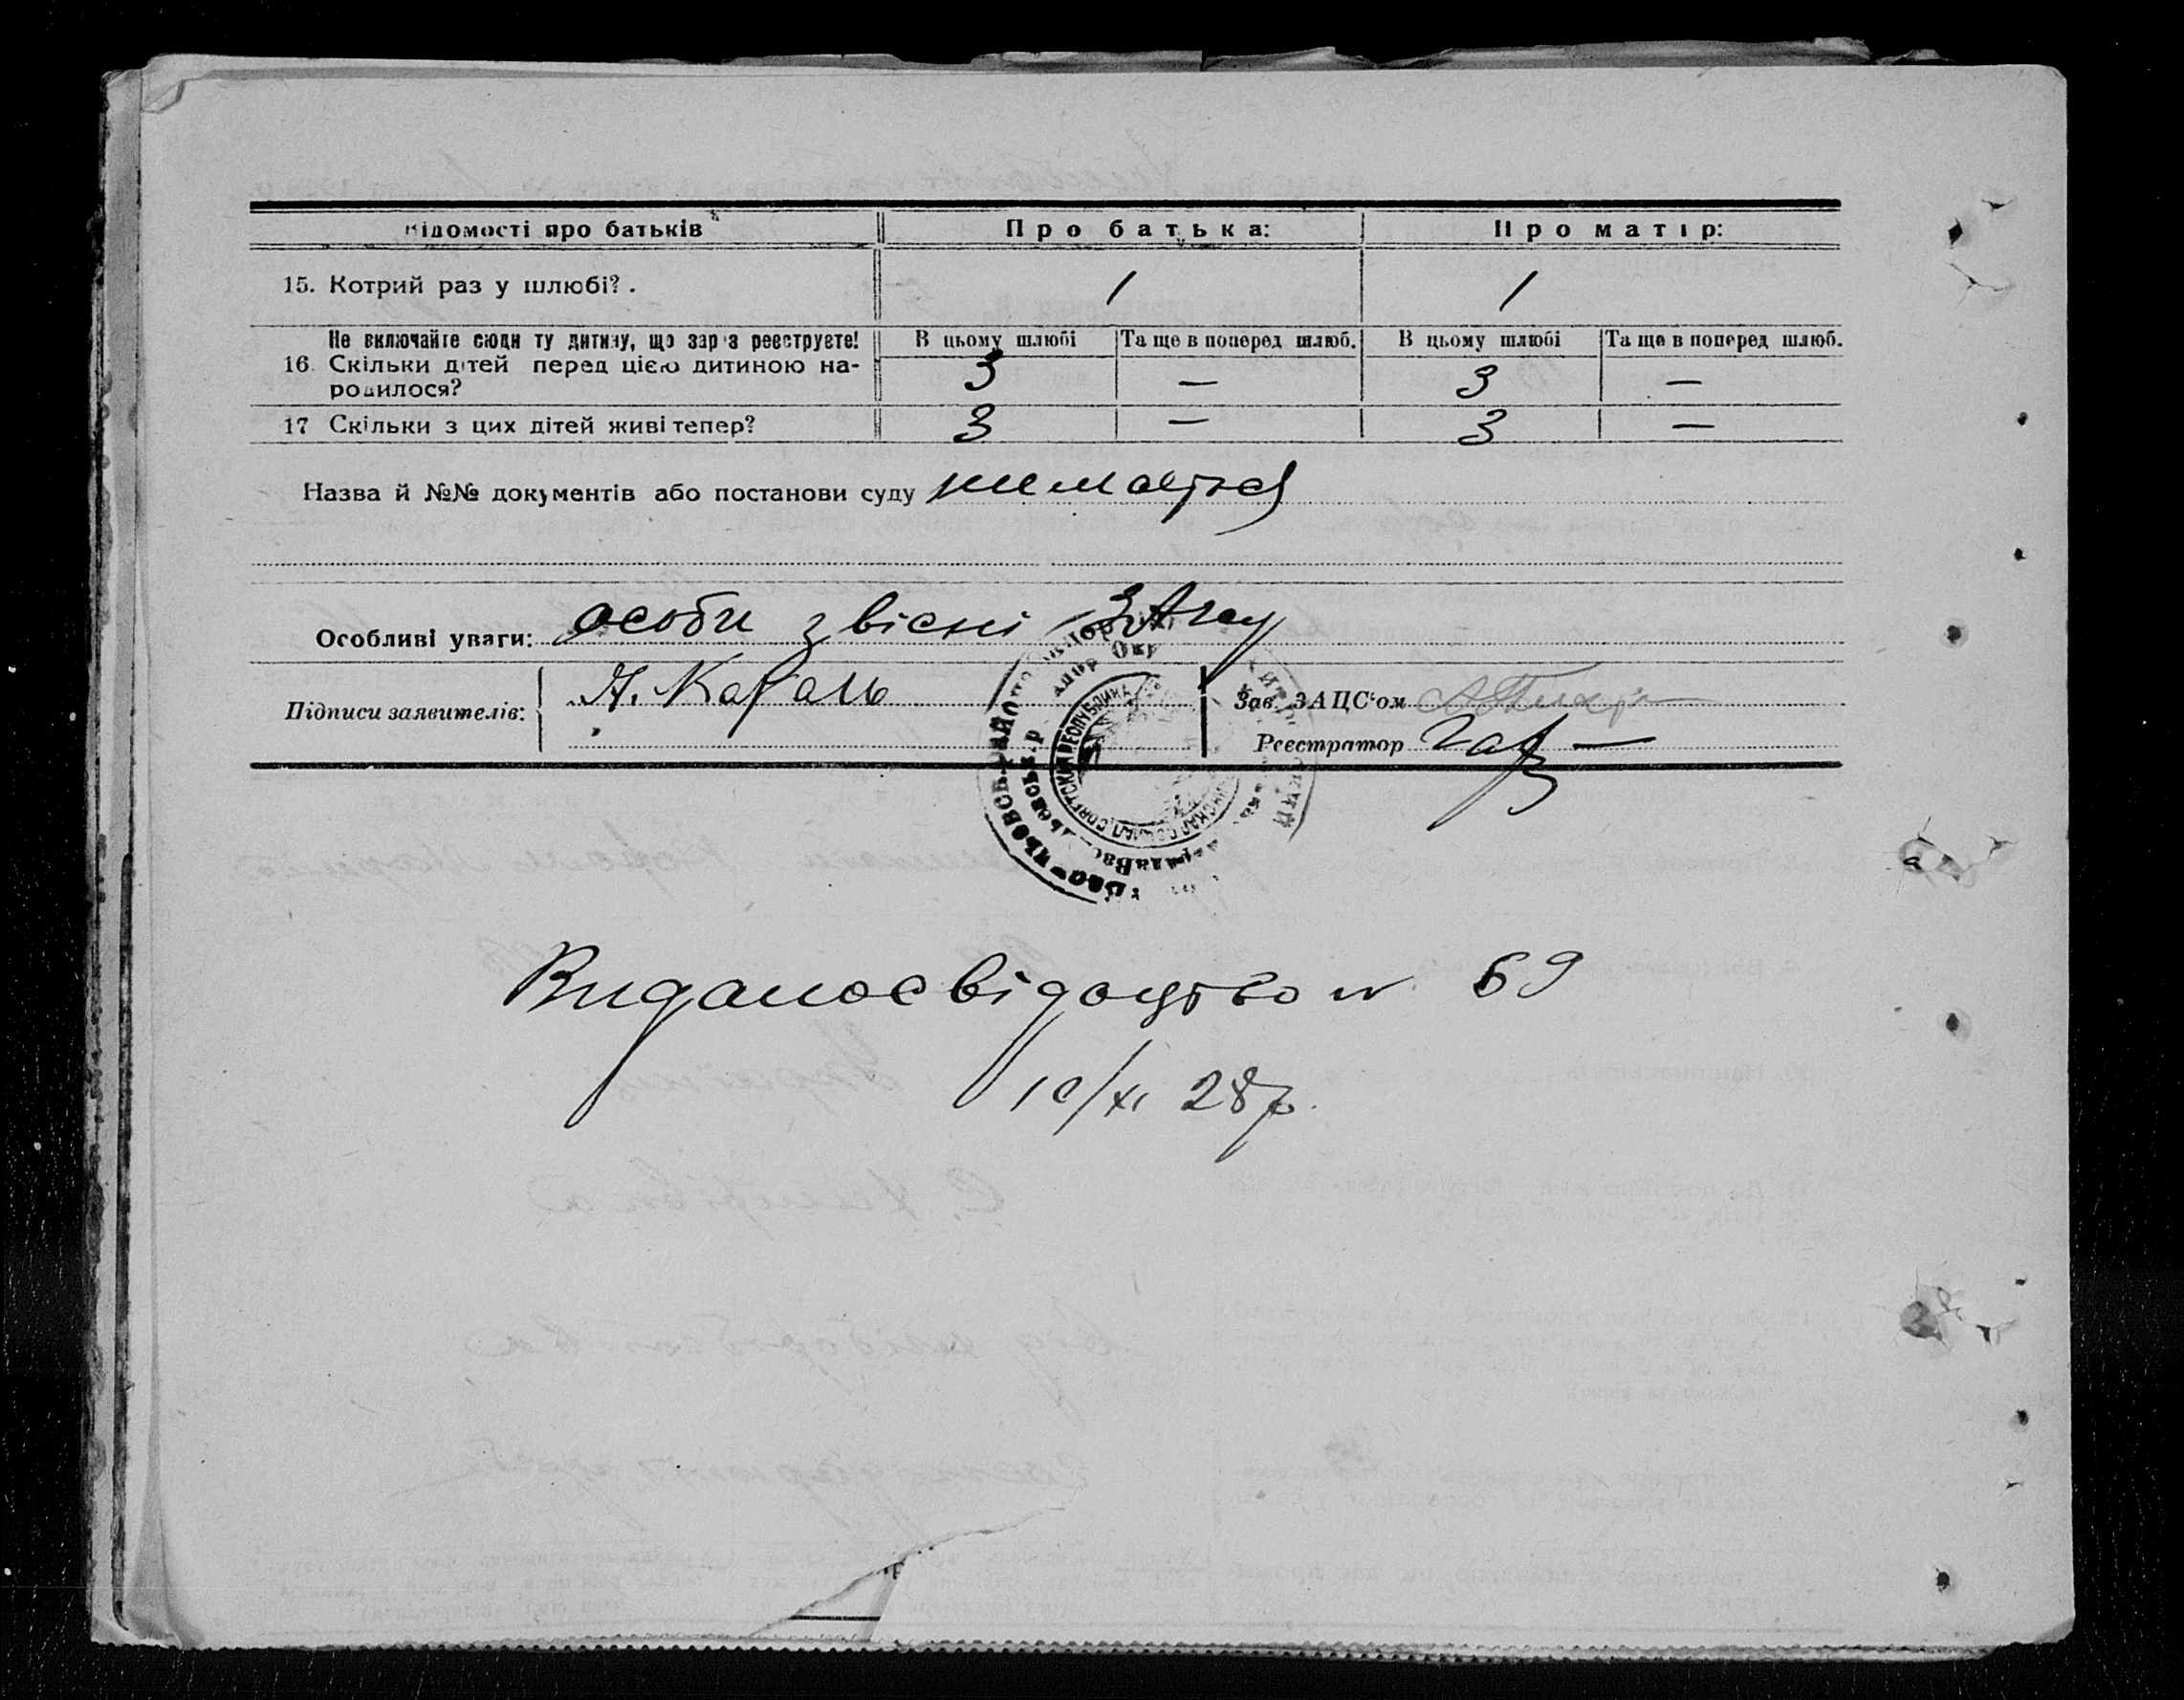 Відомості про батьків Про батька: Про матір:
15. Котрий раз у шлюбі? . 1 1
Не включайте сюди ту дитину, що зараз реєструєте! В цьому шлюбі Та ще в поперед шлюб. В цьому шлюбі Та ще в поперед шлюб.
16. Скільки дітей перед цією дитиною на- 3 — 3 —
родилося?
17 Скільки з цих дітей живі тепер? 3 — 3 —
Назва й №№ документів або постанови суду немається
Особливі уваги: особи звісні ЗАгсу
Підписи заявителів: Н. Каралъ Зав. ЗАЦС'ом
Реєстратор
Видано свідоцтво N 69
10/XI 28 р.